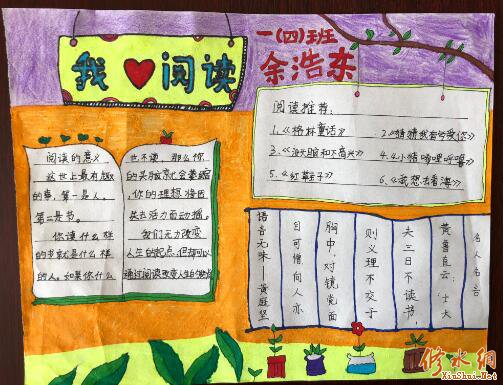 我❤阅读
一(四)班
余浩东
阅读推荐:
1.《格林童话》
2.《猜猜我有多爱你》
3.《没头脑和不高兴》
4.《小猪唏哩呼噜》
5.《红鞋子》
6.《我想去看海》
阅读的意义
这世上最有趣
的事,第一是人。
第二是书。
你读什么样
的书就是什么样
的人。如果你什么
也不读,那么你
的头脑就会萎缩
,你的理想将因
失去活力而动摇。
我们无力改变
人生的起点,但却可以
通过阅读改变人生的
名人名言
黄鲁直云:士大
夫三日不读书,
则义理不交于
胸中,对镜觉面
目可憎,向人亦
语言无味—黄庭坚
修水网
XiuShui.Net